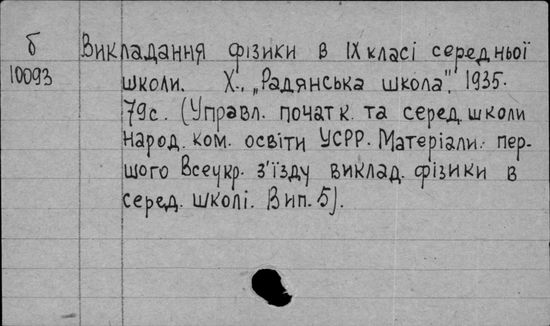 б Викладання фізики в IX класі середньої
10093 школи. Х., „Радянська школа", 1935.
79с. (Управл. початк. та серед. школи
народ. ком. освіти УСРР. Матеріали пер-
шого Всеукр. з'їзду виклад. фізики в
серед. школі. Вип. 5).